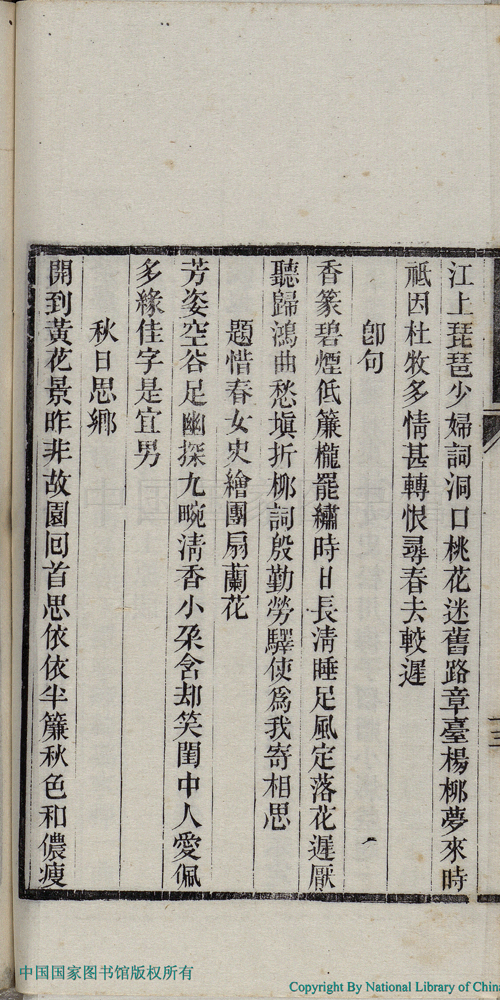 江上琵琶少婦詞洞口桃花迷舊路章臺楊柳夢來時
祗因杜牧多情甚轉恨尋春去較遲
卽句
香篆碧煙低簾櫳罷繡時日長淸睡足風定落花遲厭
聽歸鴻曲愁塡折柳詞殷勤勞驛使爲我寄相思
題惜春女史繪團扇蘭花
芳姿空谷足幽探九畹淸香小朶含却笑閨中人愛佩
多緣佳字是宜男
秋日思鄉
開到黃花景昨非故園囘首思依依半簾秋色和儂瘦
三
中国国家图书馆版权所有
Copyright By National Library of Chin